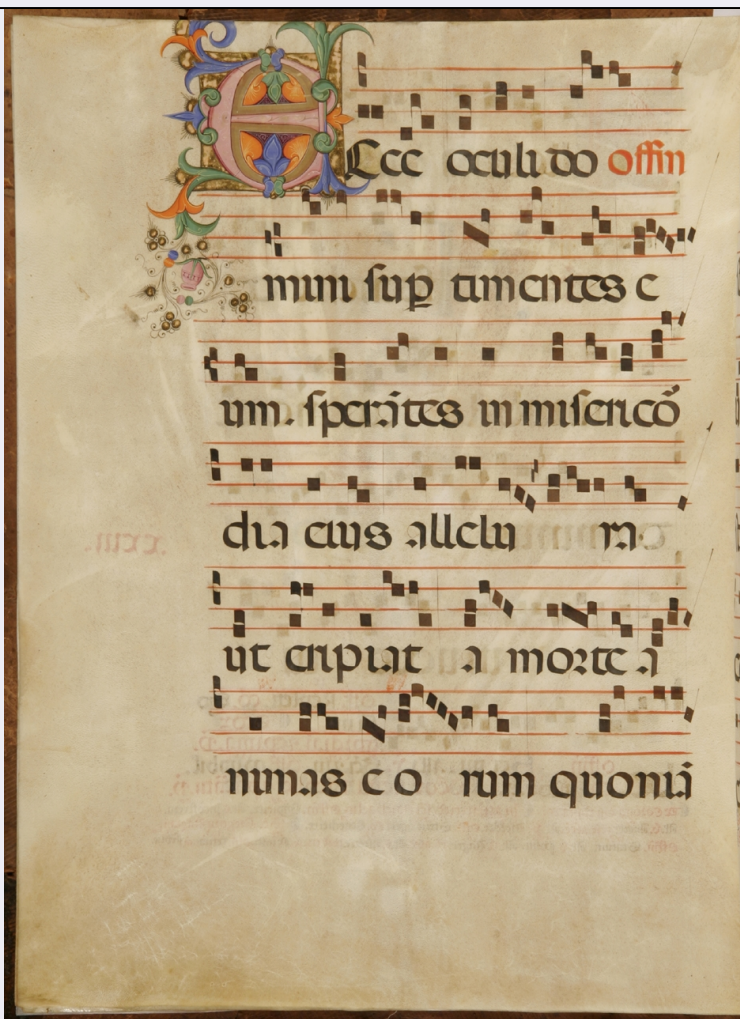 Ecce oculi do offin
mini sup timentes e
um. sperātes in misericor
dia eius allelu ia.
ut eripiat a morte a
nimas e o rum quoniā